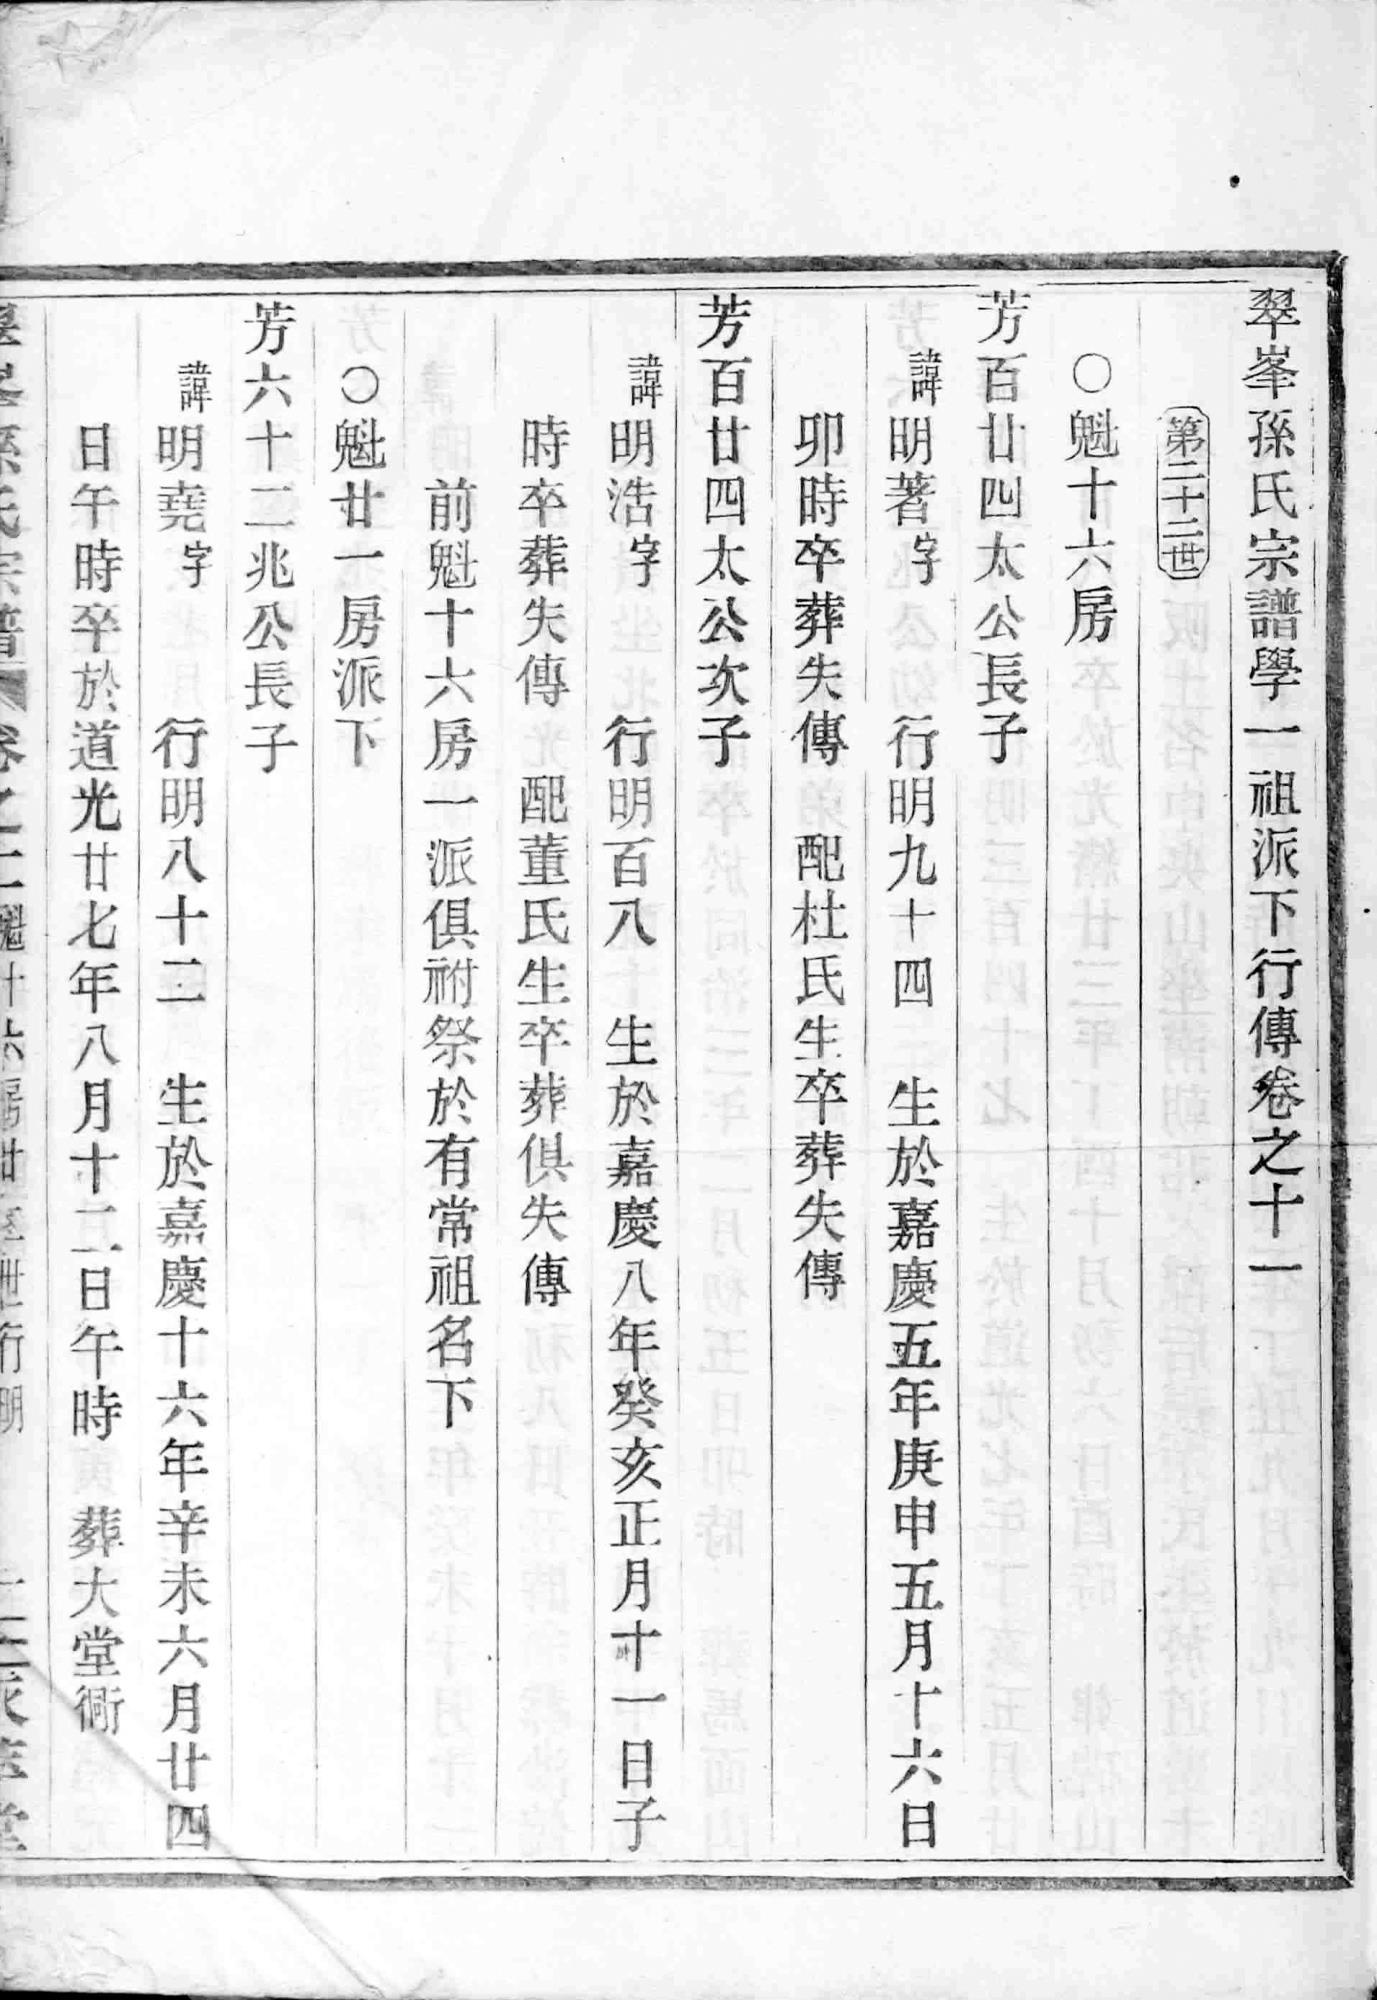 翠峯孫氏宗譜學一祖派下行傳卷之十一
第二十二世
○魁十六房
芳百廿四太公長子
諱明著字 行明九十四 生於嘉慶五年庚申五月十六日
卯時卒葬失傳 配杜氏生卒葬失傳
芳百廿四太公次子
諱明浩字 行明百八 生於嘉慶八年癸亥正月十一日子
時卒葬失傳 配董氏生卒葬俱失傳
前魁十六房一派俱祔祭於有常祖名下
○魁廿一房派下
芳六十二兆公長子
諱明堯字 行明八十二 生於嘉慶十六年辛未六月廿四
日午時卒於道光廿七年八月十二日午時 葬大堂衕
孫氏宗譜 卷之十一